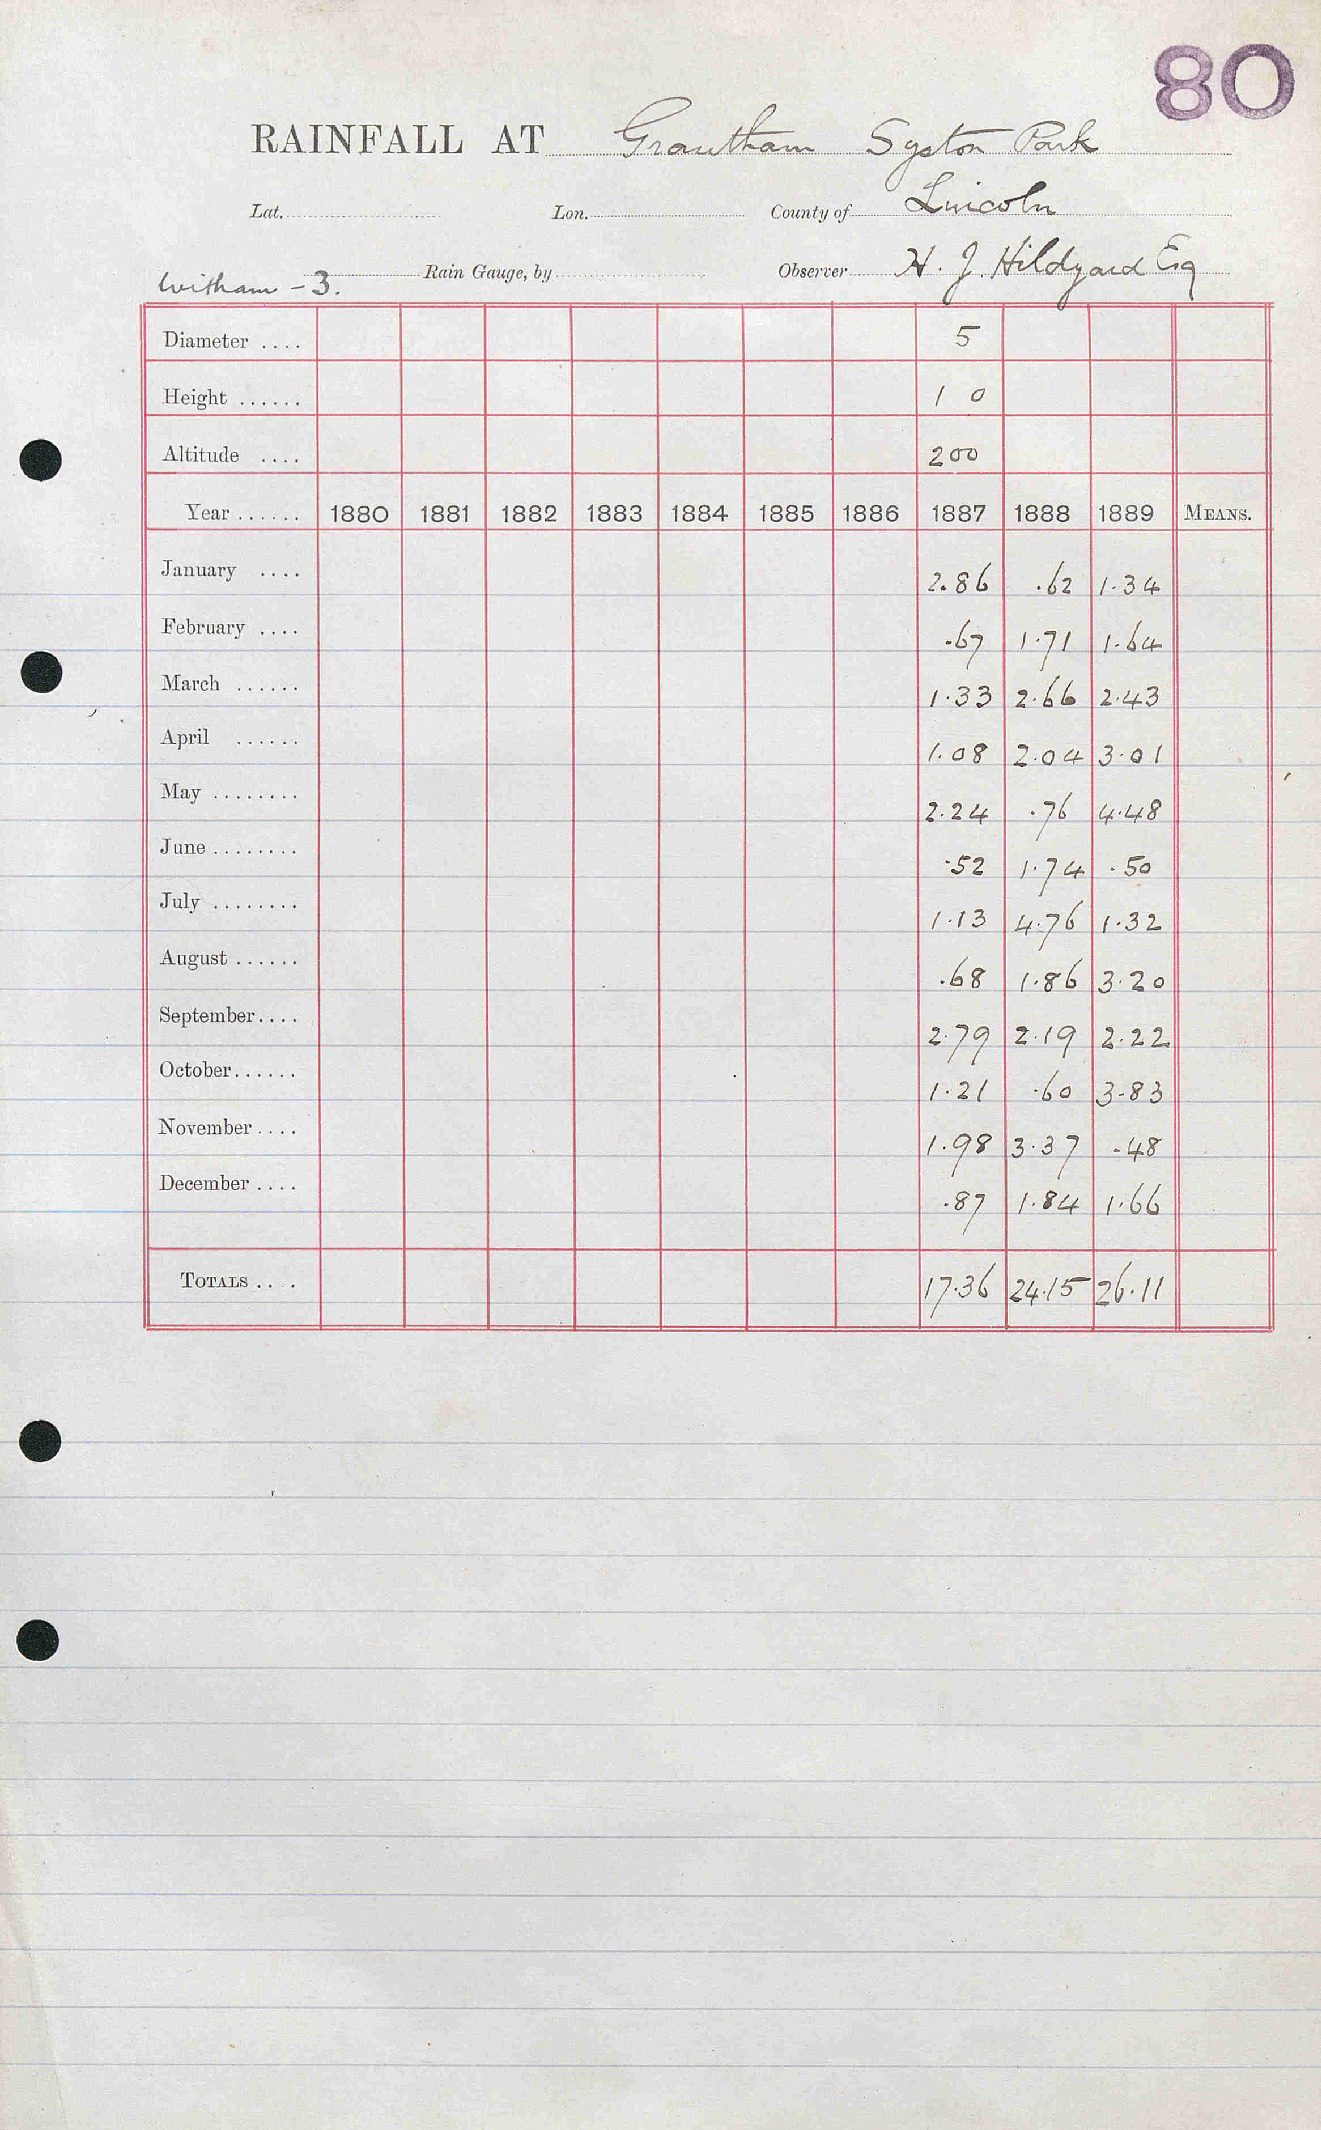 80
RAINFALL AT Grantham Syston Park
Lat. Lon. County of Lincoln
Witham - 3. Rain Gauge, by Observer H. J. Hildyard Esq
Diameter .... 5
Height ...... 1 0
Altitude .... 200
Year ...... 1880 1881 1882 1883 1884 1885 1886 1887 1888 1889 MEANS.
January .... 2.86 .62 1.34
February .... .67 1.71 1.64
March ...... 1.33 2.66 2.43
April ...... 1.08 2.04 3.01
May ........ 2.24 .76 4.48
June ........ .52 1.74 .50
July ........ 1.13 4.76 1.32
August ...... .68 1.86 3.20
September .... 2.79 2.19 2.22
October ...... 1.21 .60 3.83
November .... 1.98 3.37 .48
December .... .87 1.84 1.66
TOTALS .... 17.36 24.15 26.11